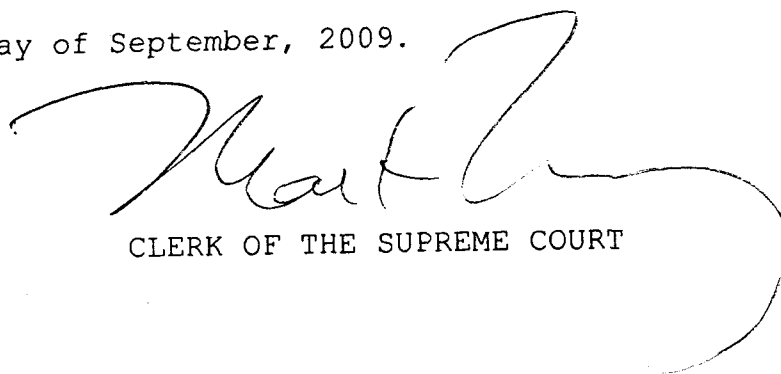 ay of September, 2009.
CLERK OF THE SUPREME COURT